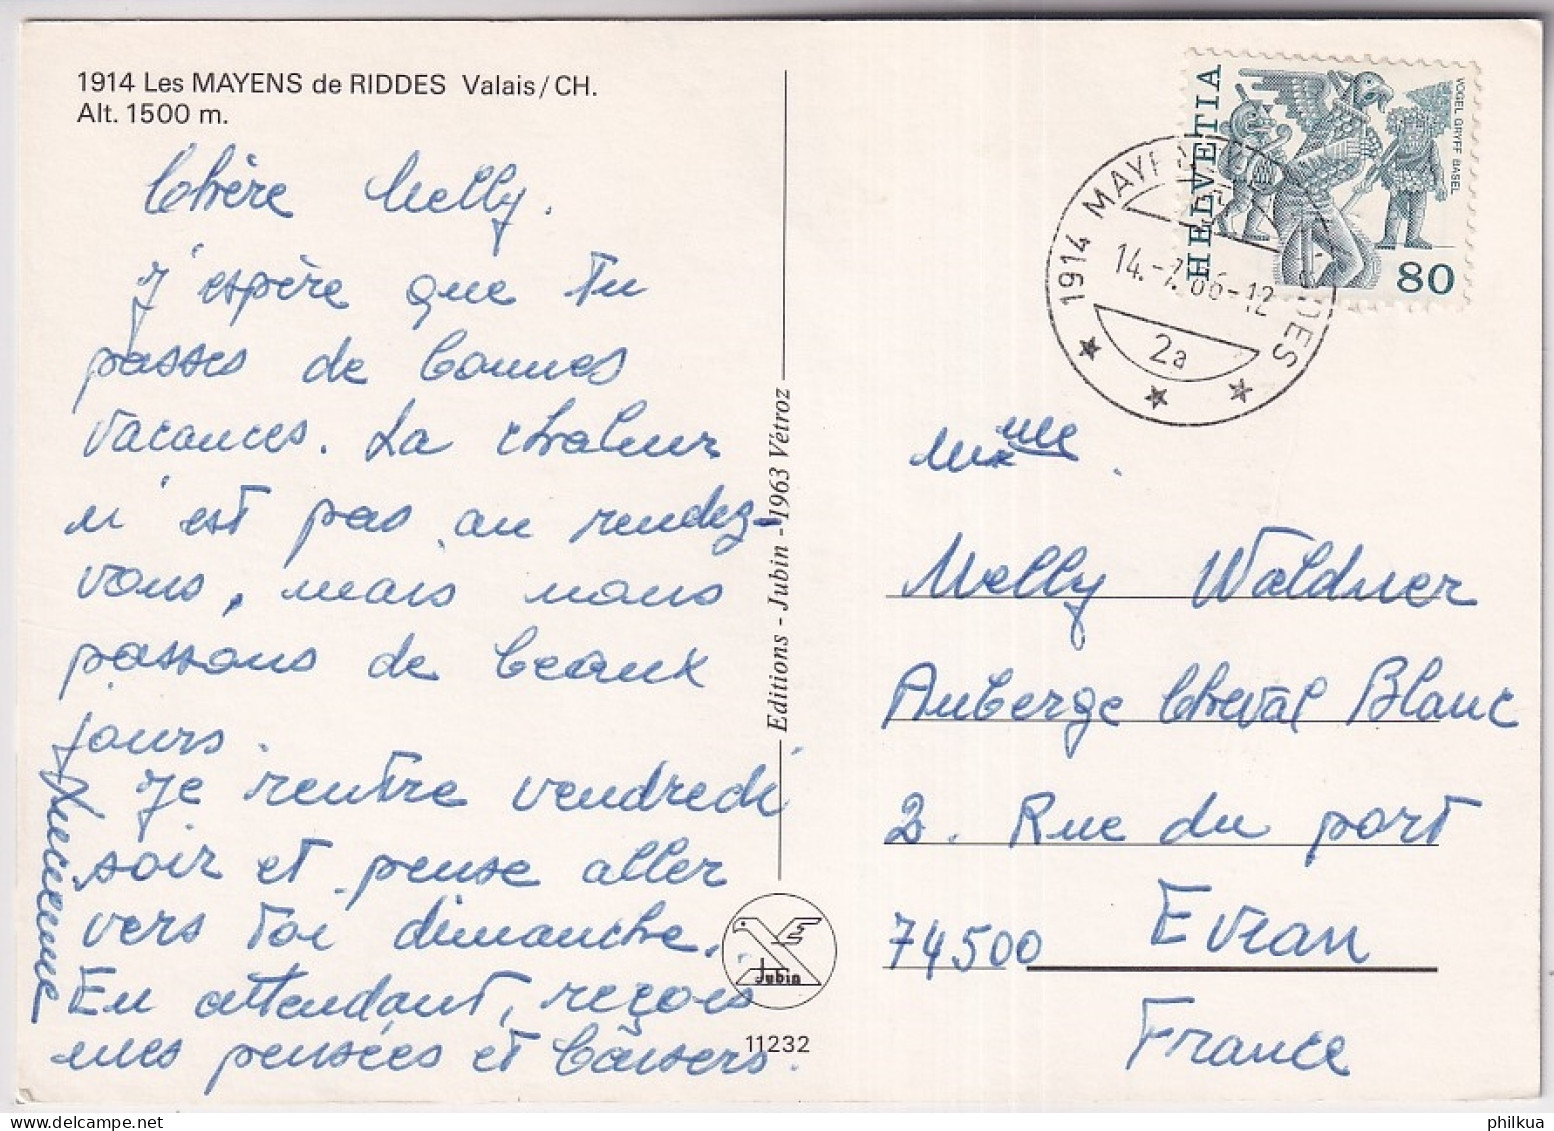 1914 Les MAYENS de RIDDES Valais/CH.
Alt. 1500 m.
Chère Nelly.
J'espère que tu
passes de bonnes
vacances. La chaleur
n'est pas au rendez-
vous, mais nous
passons de beaux
jours.
Je rentre vendredi
soir et pense aller
vers toi dimanche.
En attendant, reçois
mes pensées et baisers.
Lucienne
Editions - Jubin - 1963 Vétroz
Jubin
11232
HELVETIA
VOGEL GRYFF BASEL
80
1914 MAYENS DE RIDDES
14.-7.86-12
2a
Mme.
Nelly Waldner
Auberge Cheval Blanc
2. Rue du port
74500 Evian
France
philkua.com